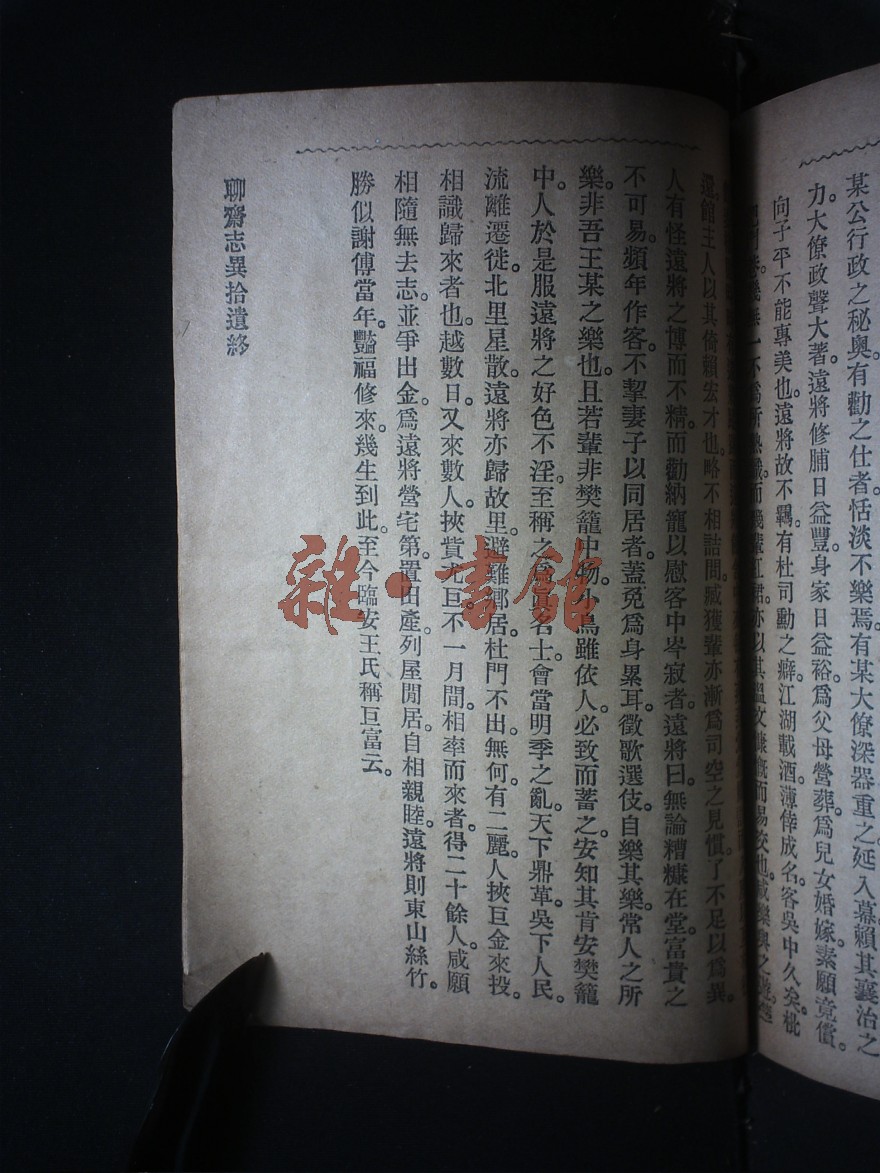 某公行政之秘奥。有勸之仕者。恬淡不樂焉。有某大僚深器重之。延入幕。賴其襄治之
力。大僚政聲大著。遠將修脯日益豐。身家日益裕。爲父母營葬。爲兒女婚嫁。素願竟償。
向子平不能專美也。遠將故不羈。有杜司勳之癖。江湖載酒。薄倖成名。客吳中久矣。枇
一不爲所熟識。而幾輩紅裙。亦以其溫文慷慨而易交也。
還。館主人以其倚賴宏才也。略不相詰問。臧獲輩亦漸爲司空之見慣了。不足以爲異。
人有怪遠將之博而不精。而勸納寵以慰客中岑寂者。遠將曰。無論糟糠在堂。富貴之
不可易。頻年作客。不挈妻子以同居者。蓋免爲身累耳。徵歌選伎。自樂其樂。常人之所
樂。非吾王某之樂也。且若輩非樊籠中物。小鳥雖依人。必致而蓄之。安知其肯安樊籠
中。人於是服遠將之好色不淫。至稱之爲眞名士。會當明季之亂。天下鼎革。吳下人民。
流離遷徙。北里星散。遠將亦歸故里。避難鄉居。杜門不出。無何有二麗人挾巨金來投。
相識歸來者也。越數日。又來數人。挾貲尤巨。不一月間。相率而來者。得二十餘人。咸願
相隨無去志。並爭出金。爲遠將營宅第。置田產。列屋閒居。自相親睦。遠將則東山絲竹。
勝似謝傅當年。豔福修來。幾生到此。至今臨安王氏稱巨富云。
聊齋志異拾遺終
雜·書館